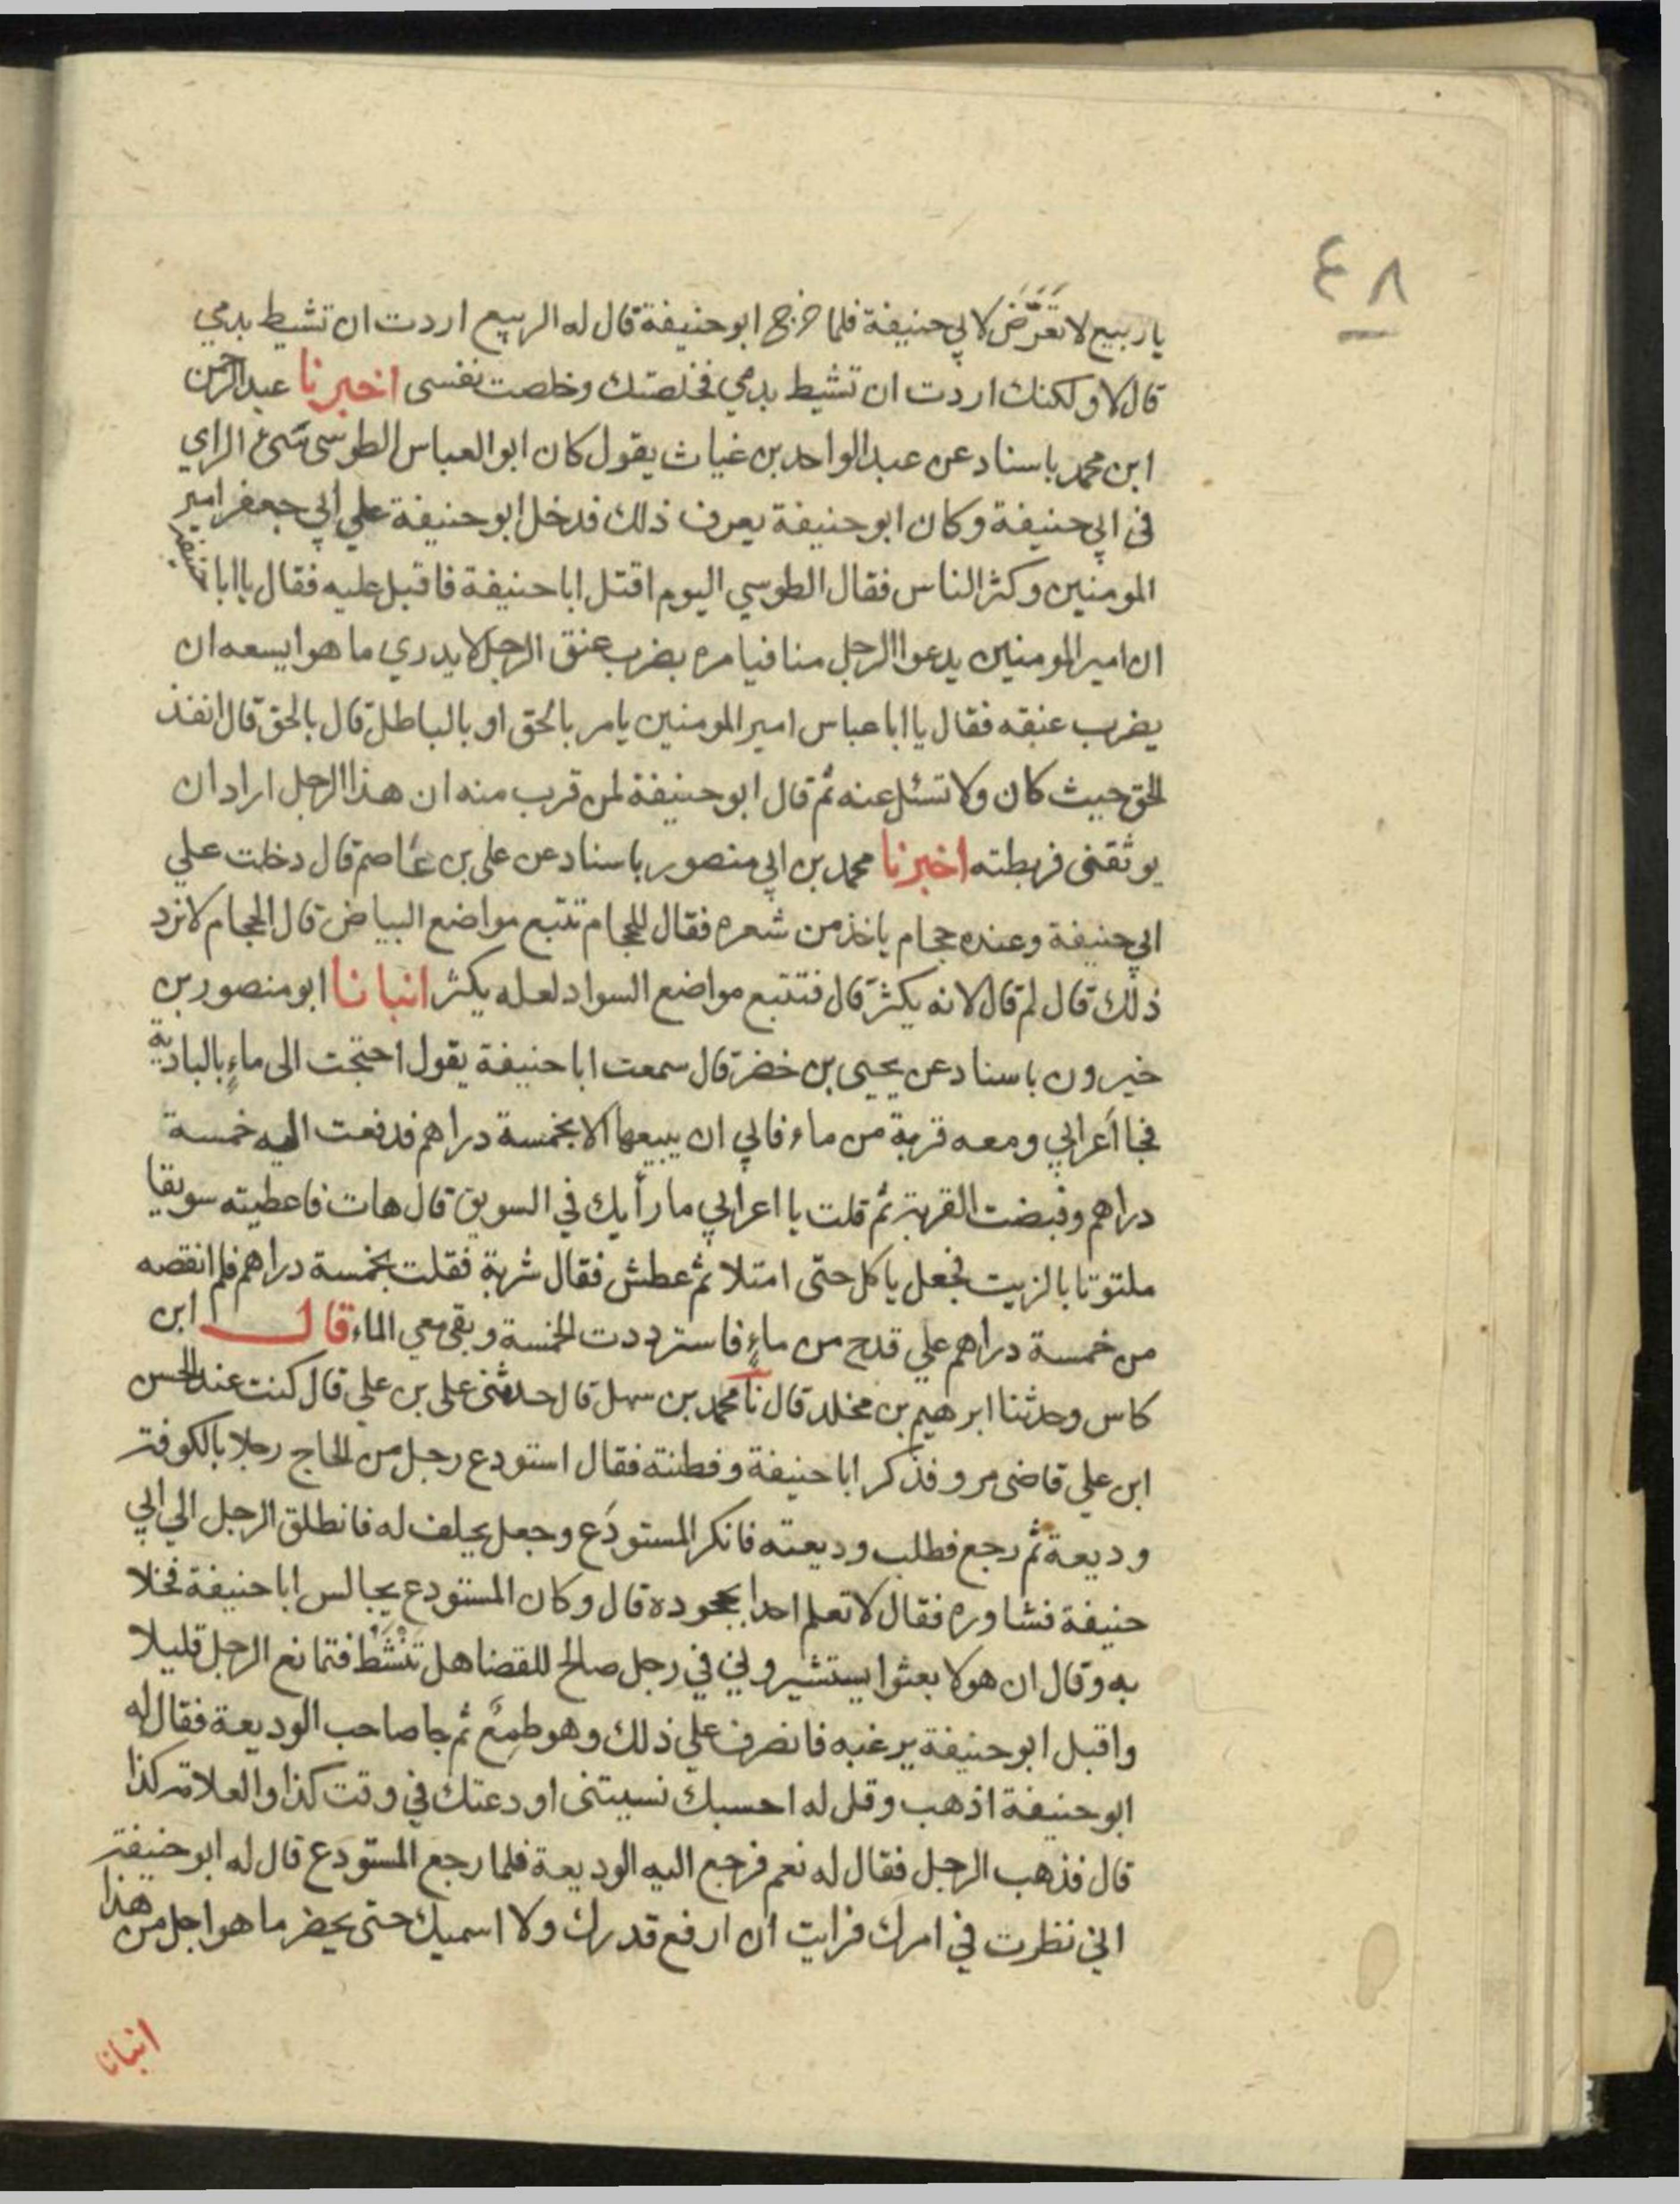 ٤٨
يا ربيع لا تَعَرَّض لابي حنيفة فلما خرج ابو حنيفة قال له الربيع اردت ان تشيط بدمي
قال لا ولكنك اردت ان تشيط بدمي فخلصتك وخلصت نفسى اخبرنا عبد الرحمن
ابن محمد باسناد عن عبد الواحد بن غياث يقول كان ابو العباس الطوسى سَىئ الراي
فى ابي حنيفة وكان ابو حنيفة يعرف ذلك فدخل ابو حنيفة علي ابي جعفر امير
المومنين وكثر الناس فقال الطوسي اليوم اقتل ابا حنيفة فاقبل عليه فقال يا ابا حنيفة
ان امير المومنين يدعوا الرجل منا فيامره بضرب عنق الرجل لا يدري ما هو ايسعه ان
يضرب عنقه فقال يا ابا عباس امير المومنين يامر بالحق او بالباطل قال بالحق قال انفذ
الحق حيث كان ولا تسئل عنه ثم قال ابو حنيفة لمن قرب منه ان هذا الرجل اراد ان
يوثقنى فربطته اخبرنا محمد بن ابي منصور باسناد عن على بن عاصم قال دخلت علي
ابي حنيفة وعنده حجام ياخذ من شعره فقال للحجام تتبع مواضع البياض قال الحجام لا نزد
ذلك قال لم قال لانه يكثر قال فتتبع مواضع السواد لعله يكثر انبانا ابو منصور بن
خيرون باسناد عن يحيى بن خضر قال سمعت ابا حنيفة يقول احتجت الى ماءٍ بالبادية
فجا أعرابي ومعه قربة من ماء فابي ان يبيعها الا بخمسة دراهم فدفعت اليه خمسة
دراهم وقبضت القربة ثم قلت يا اعرابي ما رأيك في السويق قال هات فاعطيته سويقا
ملتوتا بالزيت فجعل ياكل حتى امتلا ثم عطش فقال شربة فقلت بخمسة دراهم فلم انقصه
من خمسة دراهم علي قدح من ماءٍ فاسترددت الخمسة وبقى معي الماء قال ابن
كاس وحدثنا ابرهيم بن مخلد قال نا محمد بن سهل قال حدثنى على بن على قال كنت عند الحسن
ابن علي قاضى مرو فذكر ابا حنيفة وفطنته فقال استودع رجل من الحاج رجلا بالكوفة
وديعة ثم رجع فطلب وديعته فانكر المستودَع وجعل يحلف له فانطلق الرجل الي ابي
حنيفة فشاوره فقال لا تعلم احدا بجحوده قال وكان المستودع يجالس ابا حنيفة فخلا
به وقال ان هولا بعثوا يستشيروني في رجل صالح للقضا هل تَنْشَط فتمانع الرجل قليلا
واقبل ابو حنيفة يرغبه فانصرف علي ذلك وهو طمِعٌ ثم جا صاحب الوديعة فقال له
ابو حنيفة اذهب وقل له احسبك نسيتنى اودعتك في وقت كذا والعلامة كذا
قال فذهب الرجل فقال له نعم فرجع اليه الوديعة فلما رجع المستودع قال له ابو حنيفة
اني نظرت في امرك فرايت ان ارفع قدرك ولا اسميك حتى يحضر ما هو اجل من هذا
انبانا